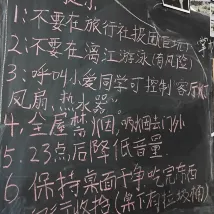 1:不要在旅行社报团
2:不要在漓江游泳(有风险)
3:呼叫小爱同学可控制客厅灯
风扇、热水器。
4,全屋禁烟,吸烟去门外
5.23点后降低音量
6 保持桌面干净吃完东西
自行收拾(桌下有垃圾桶)